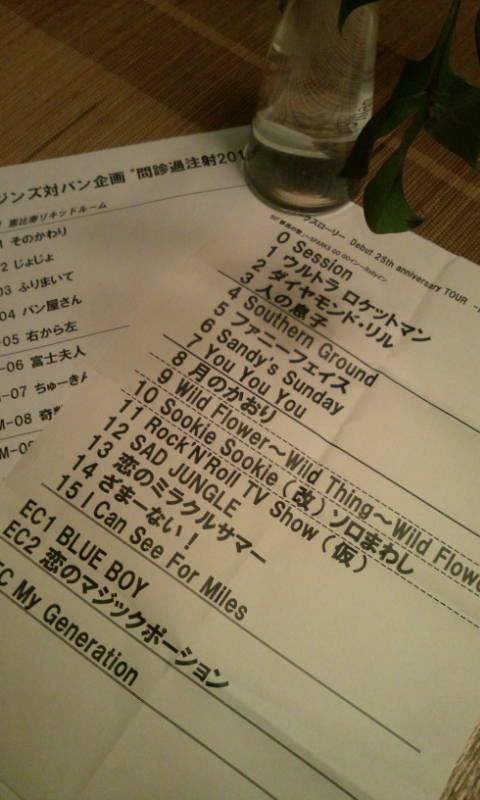 ジンズ対バン企画 "問診過注射201
恵比寿リキッドルーム
1 そのかわり
2 じょじょ
03 ふりまいて
04 パン屋さん
-05 右から左
-06 富士夫人
M-07 ちゅーきん
M-08 奇
M-09
ウスローリー Debut 25th anniversary TOUR
0 Session
1 ウルトラ ロケットマン
2 ダイヤモンド・リル
3 人の息子
4 Southern Ground
5 ファニーフェイス
6 Sandy's Sunday
7 You You You
8 月のかおり
9 Wild Flower～Wild Thing～Wild Flowe
10 Sookie Sookie（改）ソロまわし
11 Rock'N'Roll TV Show（仮）
12 SAD JUNGLE
13 恋のミラクルサマー
14 ざまーない！
15 I Can See For Miles
EC1 BLUE BOY
EC2 恋のマジックポーション
EC My Generation